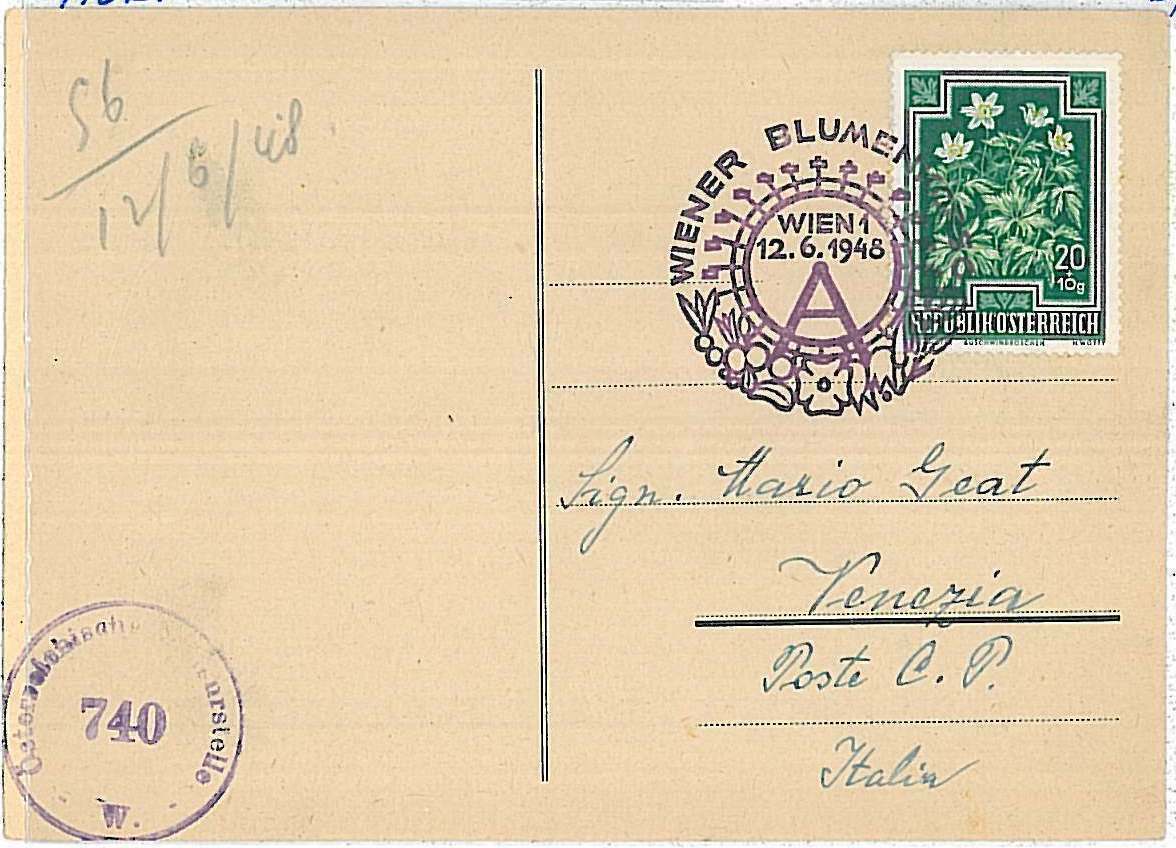 56
12/6/48
WIENER BLUMEN
WIEN 1
12.6.1948
A
20
+
10g
REPUBLIK ÖSTERREICH
Sign. Mario Geat
Venezia
Poste C. P.
Italia
740
W.